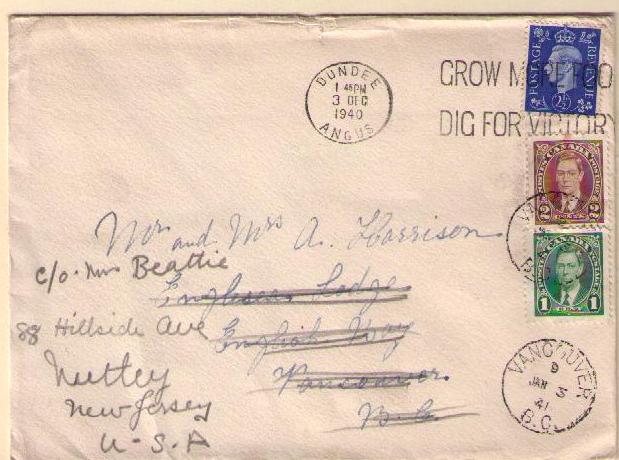 DUNDEE
1 45PM
3 DEC
1940
ANGUS
GROW MORE FOO
DIG FOR VICTORY
POSTAGE REVENUE
2½
POSTES CANADA POSTAGE
2 2
POSTES CANADA POSTAGE
1 1
Mr and Mrs A. Harrison
c/o. Mrs Beattie
Lodge
88 Hillside Ave
English Way
Nutley
Vancouver
New Jersey
B.C.
U-S.A
VANCOUVER
9
JAN 3
41
B.C.